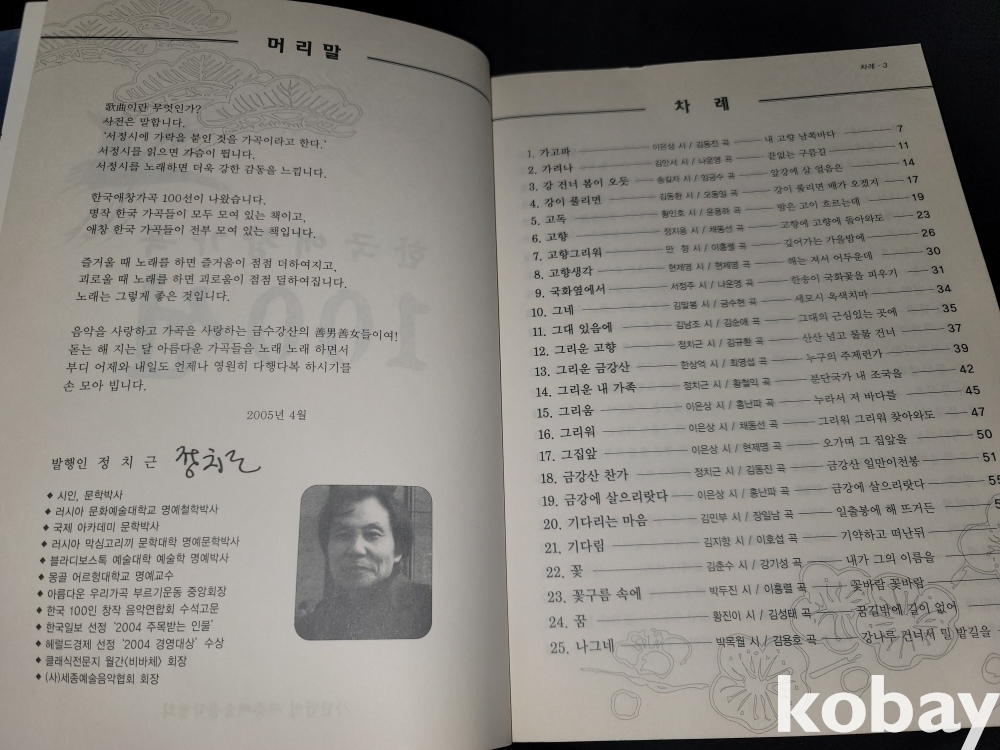 머리말
歌曲이란 무엇인가?
사전은 말합니다.
'서정시에 가락을 붙인 것을 가곡이라고 한다.'
서정시를 읽으면 가슴이 뜁니다.
서정시를 노래하면 더욱 강한 감동을 느낍니다.
한국애창가곡 100선이 나왔습니다.
명작 한국 가곡들이 모두 모여 있는 책이고,
애창 한국 가곡들이 전부 모여 있는 책입니다.
즐거울 때 노래를 하면 즐거움이 점점 더하여지고,
괴로울 때 노래를 하면 괴로움이 점점 덜하여집니다.
노래는 그렇게 좋은 것입니다.
음악을 사랑하고 가곡을 사랑하는 금수강산의 善男善女들이여!
돋는 해 지는 달 아름다운 가곡들을 노래 노래 하면서
부디 어제와 내일도 언제나 영원히 다행다복 하시기를
손 모아 빕니다.
2005년 4월
발행인 정 치 근 정치근
◆ 시인, 문학박사
◆ 러시아 문화예술대학교 명예철학박사
◆ 국제 아카데미 문학박사
◆ 러시아 막심고리끼 문학대학 명예문학박사
◆ 블라디보스톡 예술대학 예술학 명예박사
◆ 몽골 어르험대학교 명예교수
◆ 아름다운 우리가곡 부르기운동 중앙회장
◆ 한국 100인 창작 음악연합회 수석고문
◆ 한국일보 선정 '2004 주목받는 인물'
◆ 헤럴드경제 선정 '2004 경영대상' 수상
◆ 클래식전문지 월간<비바체> 회장
◆ (사)세종예술음악협회 회장
차례 · 3
차 례
1. 가고파 이은상 시 / 김동진 곡 내 고향 남쪽바다 7
2. 가려나 김안서 시 / 나운영 곡 끝없는 구름길 11
3. 강 건너 봄이 오듯 송길자 시 / 임긍수 곡 앞강에 살 얼음은 14
4. 강이 풀리면 김동환 시 / 오동일 곡 강이 풀리면 배가 오겠지 17
5. 고독 황인호 시 / 윤용하 곡 밤은 고이 흐르는데 19
6. 고향 정지용 시 / 채동선 곡 고향에 고향에 돌아와도 23
7. 고향그리워 만 향 시 / 이흥렬 곡 깊어가는 가을밤에 26
8. 고향생각 현제명 시 / 현제명 곡 해는 져서 어두운데 30
9. 국화옆에서 서정주 시 / 나운영 곡 한송이 국화꽃을 피우기 31
10. 그네 김말봉 시 / 금수현 곡 세모시 옥색치마 34
11. 그대 있음에 김남조 시 / 김순애 곡 그대의 근심있는 곳에 35
12. 그리운 고향 정치근 시 / 김규환 곡 산산 넘고 물물 건너 37
13. 그리운 금강산 한상억 시 / 최영섭 곡 누구의 주제런가 39
14. 그리운 내 가족 정치근 시 / 황철익 곡 분단국가 내 조국을 42
15. 그리움 이은상 시 / 홍난파 곡 누라서 저 바다를 45
16. 그리워 이은상 시 / 채동선 곡 그리워 그리워 찾아와도 47
17. 그집앞 이은상 시 / 현제명 곡 오가며 그 집앞을 50
18. 금강산 찬가 정치근 시 / 김동진 곡 금강산 일만이천봉 51
19. 금강에 살으리랏다 이은상 시 / 홍난파 곡 금강에 살으리랏다 55
20. 기다리는 마음 김민부 시 / 장일남 곡 일출봉에 해 뜨거든
21. 기다림 김지향 시 / 이호섭 곡 기약하고 떠난뒤
22. 꽃 김춘수 시 / 강기성 곡 내가 그의 이름을
23. 꽃구름 속에 박두진 시 / 이흥렬 곡 꽃바람 꽃바람
24. 꿈 황진이 시 / 김성태 곡 꿈길밖에 길이 없어
25. 나그네 박목월 시 / 김용호 곡 강나루 건너서 밀 밭길을
kobay